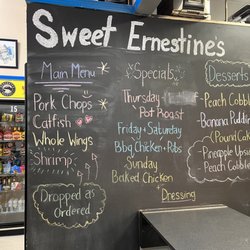 Sweet Ernestine's
Main Menu
Pork Chops
Catfish
Whole Wings
Shrimp
Dropped as
Ordered
Specials
Thursday -
Pot Roast
Friday + Saturday
BBq Chicken + Ribs
Sunday
Baked Chicken
+
Dressing
Desserts
- Peach Cobbl
- Banana Puddin
(Pound Cak
- Pineapple Upsi
- Peach Cobble
15